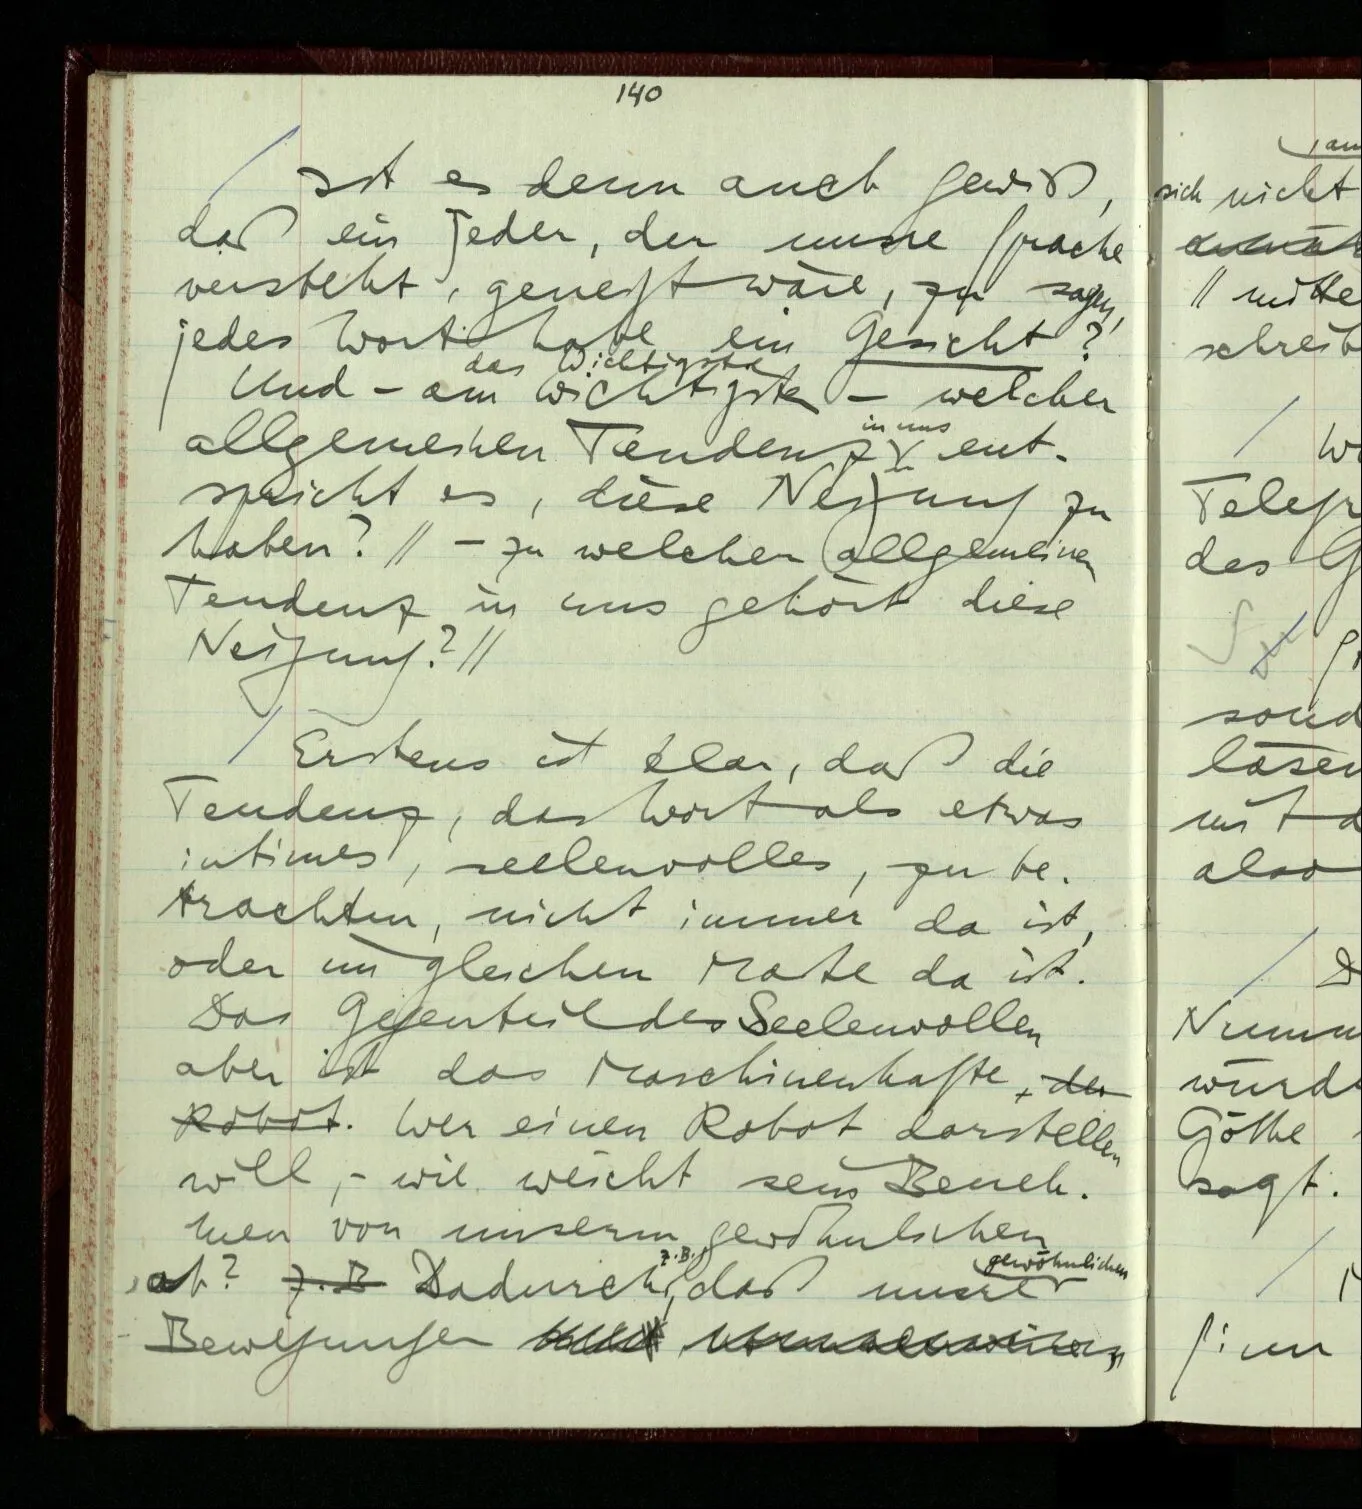 140
Ist es denn auch gewiß,
daß ein Jeder, der unsre Sprache
versteht, geneigt wäre, zu sagen,
jedes Wort habe ein Gesicht?
das Wichtigste
Und – am wichtigsten – welcher
in uns
allgemeinen Tendenz ent-
spricht es, diese Neigung zu
haben? // – zu welcher allgemeinen
Tendenz in uns gehört diese
Neigung? //
Erstens ist klar, daß die
Tendenz, das Wort als etwas
intimes, seelenvolles, zu be-
trachten, nicht immer da ist,
oder im gleichen Maße da ist.
Das Gegenteil des Seelenvollen
aber ist das Maschinenhafte, der
Robot. Wer einen Robot darstellen
will, – wie weicht sein Beneh-
men von unserm gewöhnlichen
z.B.,
gewöhnlichen
ab? z.B. Dadurch, daß unsre
Bewegungen
sich nicht
// mitte
schreib
Telegr
des G
sond
lösen
mit d
also
D
Numm
würde
Göthe
sagt.